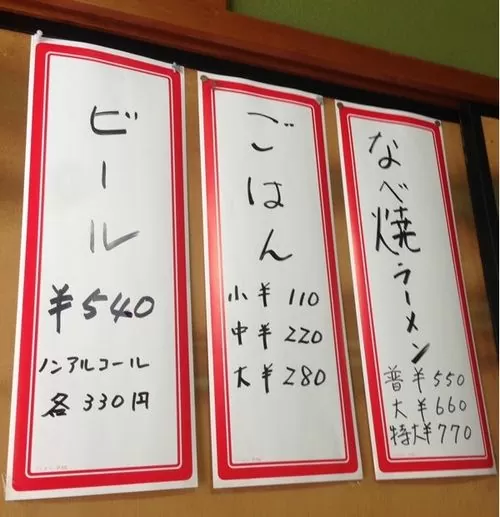 なべ焼ラーメン
普¥550
大¥660
特大¥770
ごはん
小¥110
中¥220
大¥280
ビール
¥540
ノンアルコール
各330円